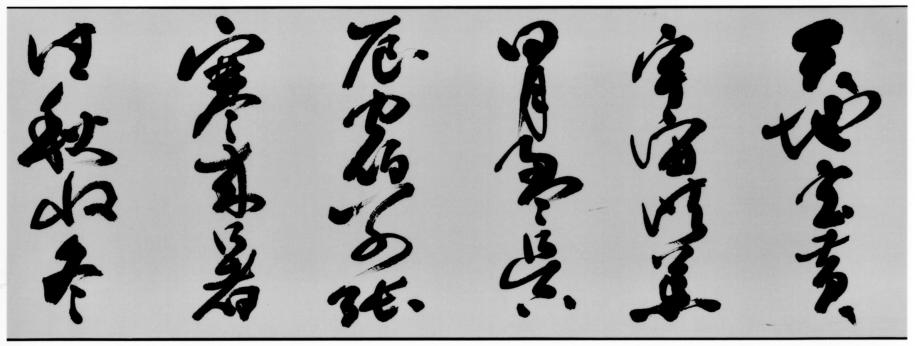 天地玄黃
宇宙洪荒
日月盈昃
辰宿列張
寒來暑
往秋收冬